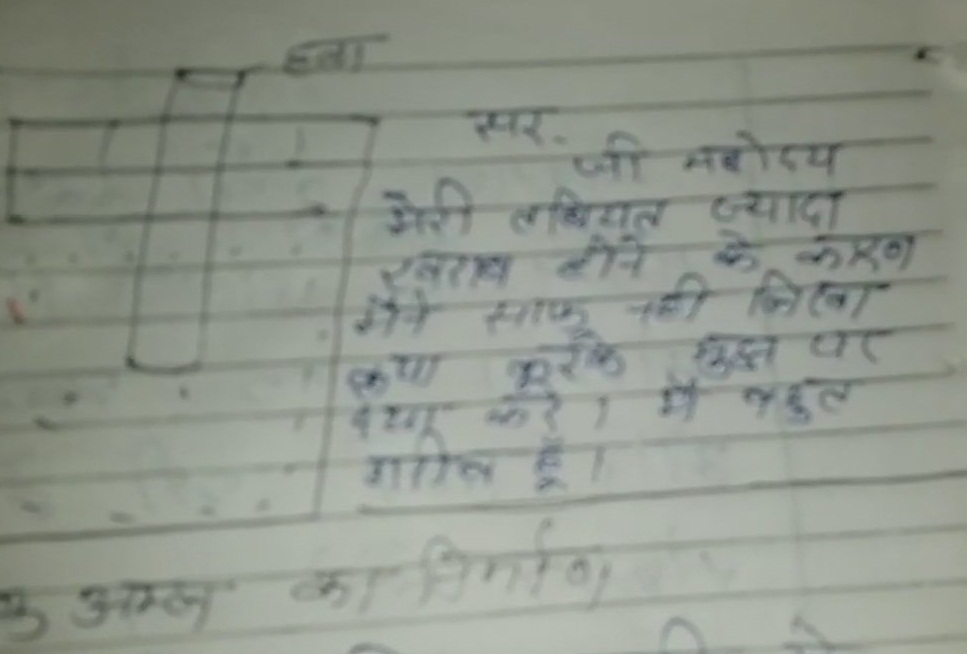 हवा
सर.
जी महोदय
मेरी तबियत ज्यादा
खराब होने के कारण
मैने साफ नही लिखा
कृपा करके मुझ पर
दया करे। मैं बहुत
गरीब हूँ।
अम्ल का निर्माण